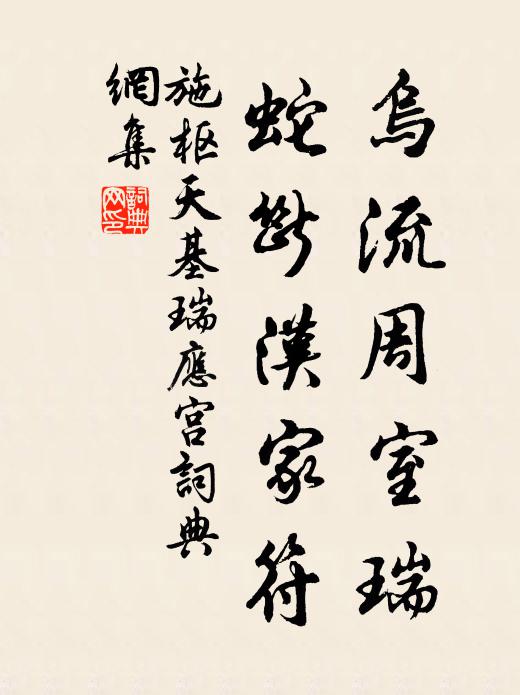 烏流周室瑞
蛇斷漢家符
施枢天基瑞應宫詞典
網集
詞典網印